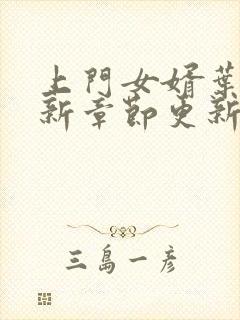 上門女婿葉
新章節更新
三島一彥